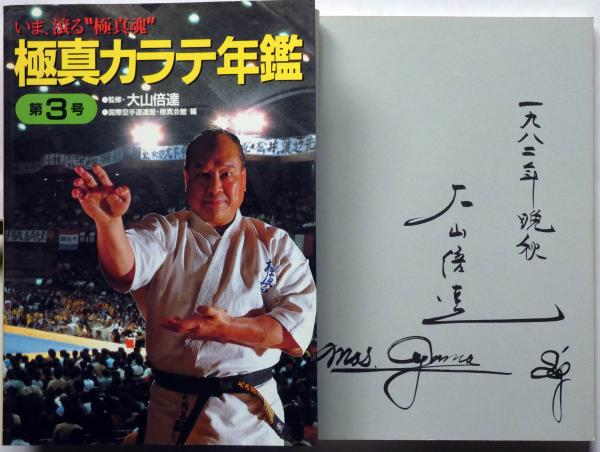 いま、滾る"極真魂"
極真カラテ年鑑
第3号
●監修・大山倍達
●国際空手道連盟・極真会館 編
極真会
一九八二年晩秋
大山倍達
Mas. Oyama